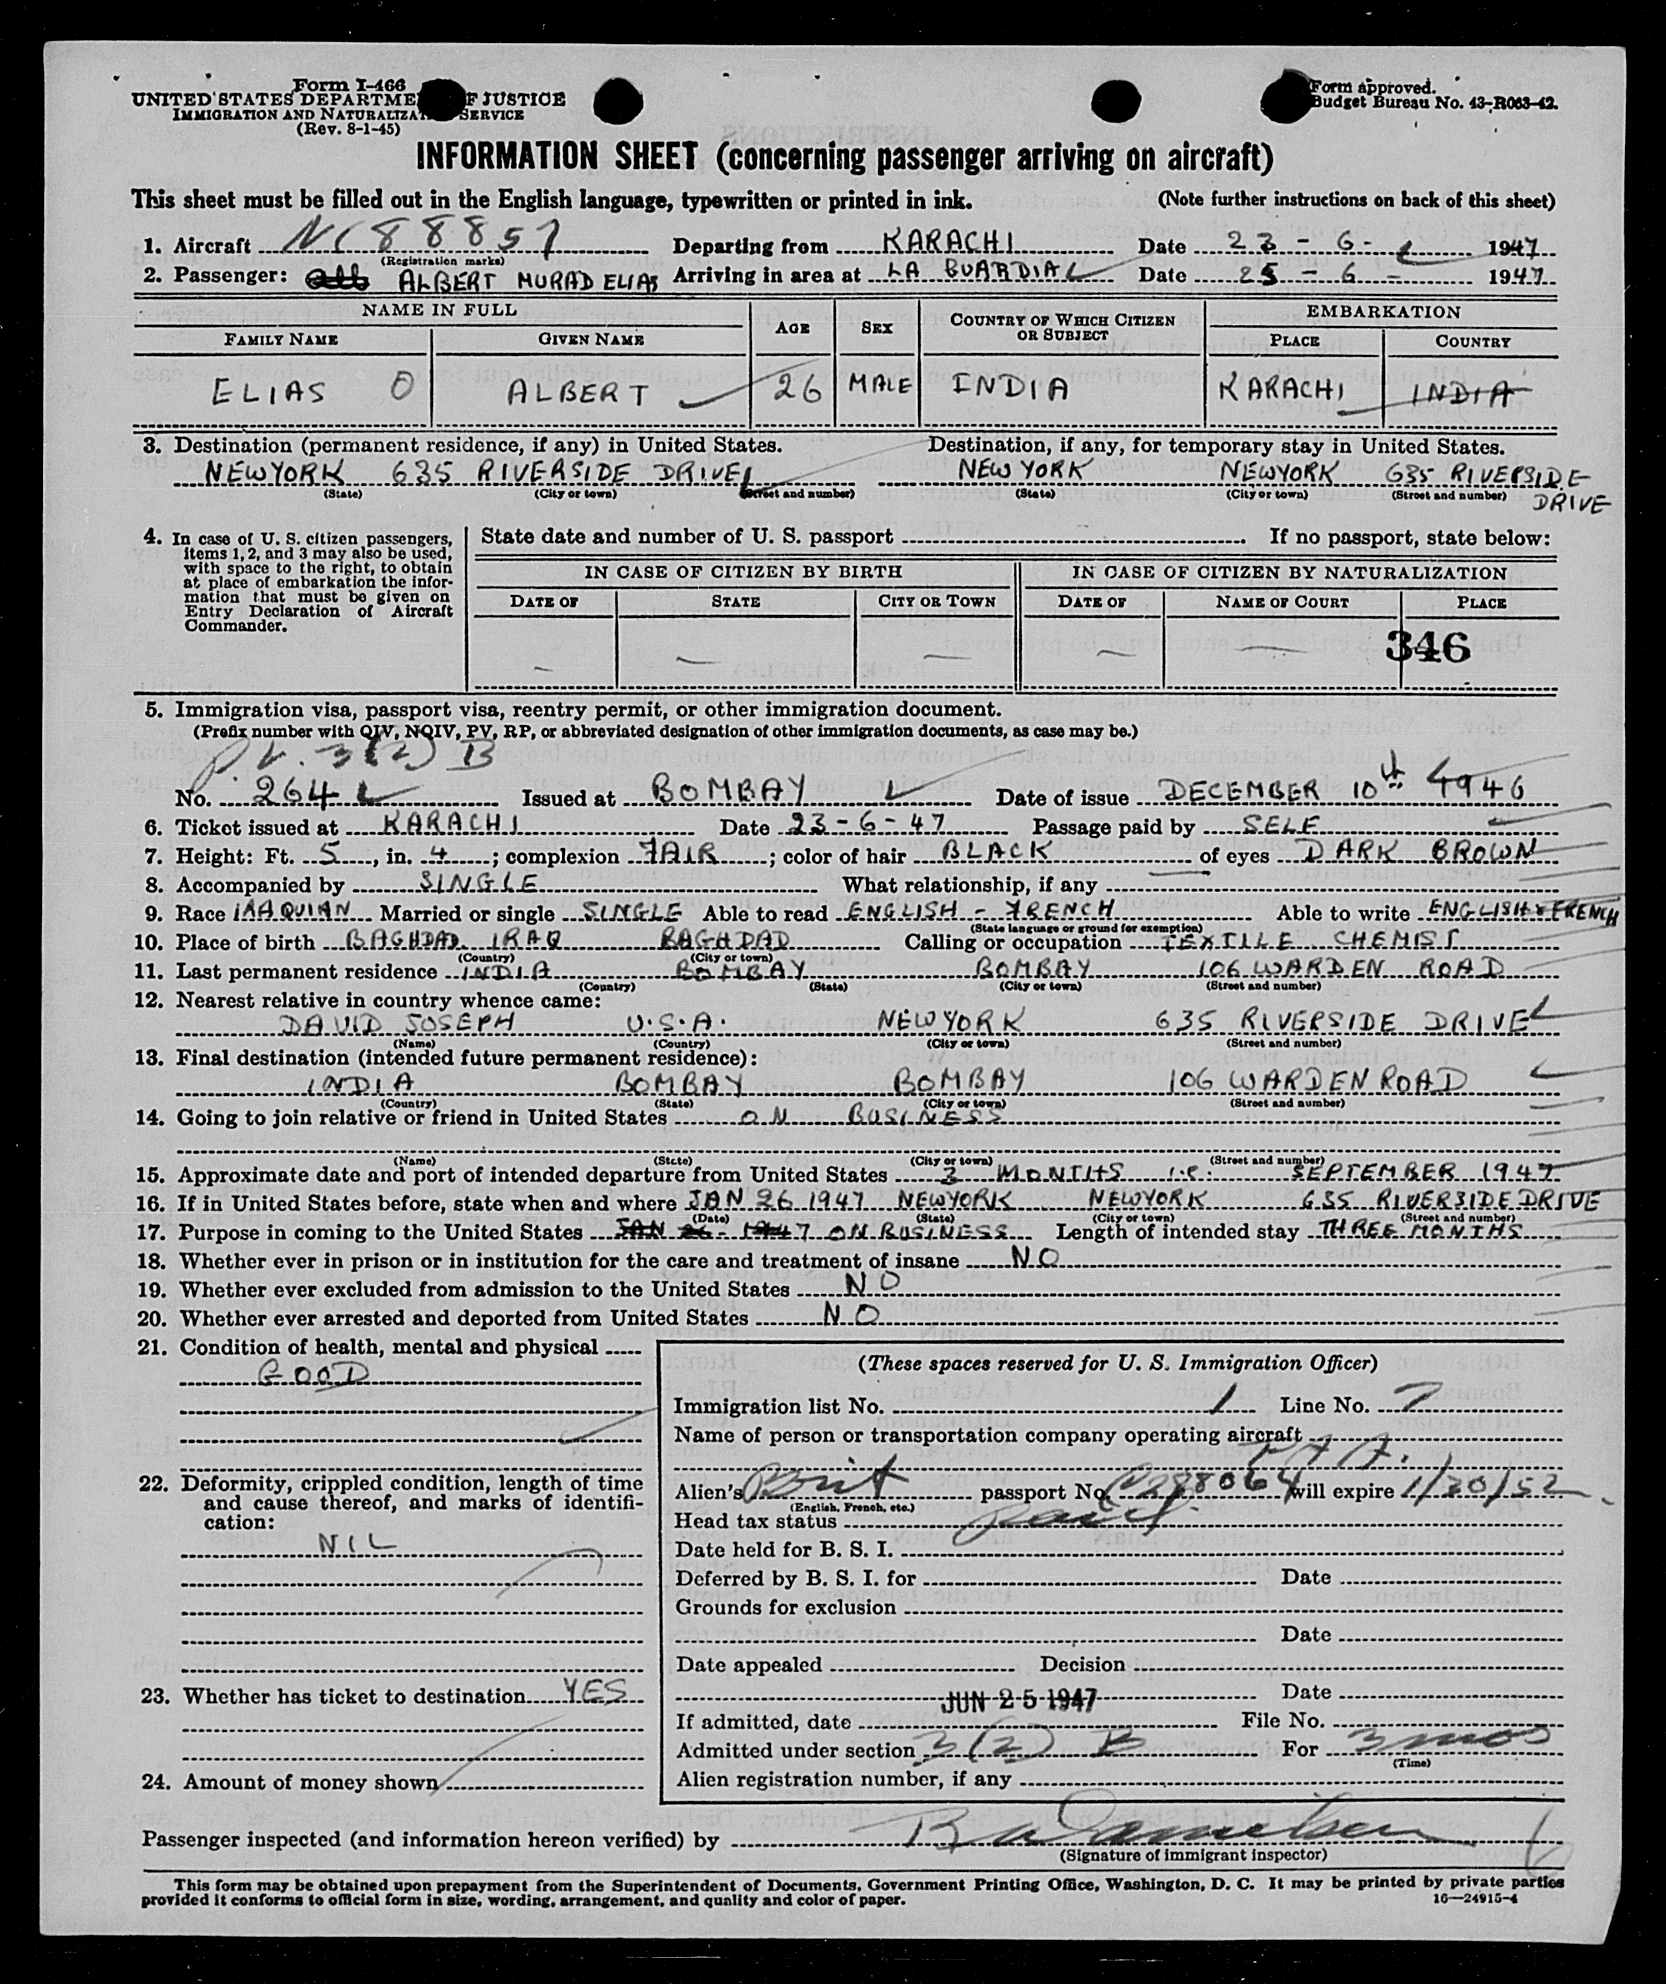 Form I-466
UNITED STATES DEPARTMENT OF JUSTICE
IMMIGRATION AND NATURALIZATION SERVICE
(Rev. 8-1-45)
Form approved.
Budget Bureau No. 43-R063-42.
INFORMATION SHEET (concerning passenger arriving on aircraft)
This sheet must be filled out in the English language, typewritten or printed in ink. (Note further instructions on back of this sheet)
1. Aircraft NC 88857 Departing from KARACHI Date 23 - 6 - 1947
(Registration marks)
2. Passenger: ALBERT MURAD ELIAS Arriving in area at LA GUARDIA Date 25 - 6 - 1947
NAME IN FULL AGE SEX COUNTRY OF WHICH CITIZEN OR SUBJECT EMBARKATION
FAMILY NAME GIVEN NAME PLACE COUNTRY
ELIAS O ALBERT 26 MALE INDIA KARACHI INDIA
3. Destination (permanent residence, if any) in United States. Destination, if any, for temporary stay in United States.
NEWYORK 635 RIVERSIDE DRIVE NEW YORK NEWYORK 635 RIVERSIDE DRIVE
(State) (City or town) (Street and number) (State) (City or town) (Street and number)
4. In case of U. S. citizen passengers, items 1, 2, and 3 may also be used, with space to the right, to obtain at place of embarkation the information that must be given on Entry Declaration of Aircraft Commander.
State date and number of U. S. passport If no passport, state below:
IN CASE OF CITIZEN BY BIRTH IN CASE OF CITIZEN BY NATURALIZATION
DATE OF STATE CITY OR TOWN DATE OF NAME OF COURT PLACE
— — — — — 346
5. Immigration visa, passport visa, reentry permit, or other immigration document.
(Prefix number with QIV, NQIV, PV, RP, or abbreviated designation of other immigration documents, as case may be.)
P.V. 3(2) B
No. 264 Issued at BOMBAY Date of issue DECEMBER 10th 1946
6. Ticket issued at KARACHI Date 23-6-47 Passage paid by SELF
7. Height: Ft. 5, in. 4; complexion FAIR; color of hair BLACK of eyes DARK BROWN
8. Accompanied by SINGLE What relationship, if any
9. Race IRAQUIAN Married or single SINGLE Able to read ENGLISH - FRENCH Able to write ENGLISH & FRENCH
(State language or ground for exemption)
10. Place of birth BAGHDAD IRAQ BAGHDAD Calling or occupation TEXTILE CHEMIST
(Country) (City or town)
11. Last permanent residence INDIA BOMBAY BOMBAY 106 WARDEN ROAD
(Country) (State) (City or town) (Street and number)
12. Nearest relative in country whence came:
DAVID JOSEPH U.S.A. NEWYORK 635 RIVERSIDE DRIVE
(Name) (Country) (City or town) (Street and number)
13. Final destination (intended future permanent residence):
INDIA BOMBAY BOMBAY 106 WARDEN ROAD
(Country) (State) (City or town) (Street and number)
14. Going to join relative or friend in United States ON BUSINESS
(Name) (State) (City or town) (Street and number)
15. Approximate date and port of intended departure from United States 3 MONTHS i.e. SEPTEMBER 1947
16. If in United States before, state when and where JAN 26 1947 NEWYORK NEWYORK 635 RIVERSIDE DRIVE
(Date) (State) (City or town) (Street and number)
17. Purpose in coming to the United States JAN 26- 1947 ON BUSINESS Length of intended stay THREE MONTHS
18. Whether ever in prison or in institution for the care and treatment of insane NO
19. Whether ever excluded from admission to the United States NO
20. Whether ever arrested and deported from United States NO
21. Condition of health, mental and physical
GOOD
22. Deformity, crippled condition, length of time and cause thereof, and marks of identification:
NIL
23. Whether has ticket to destination YES
24. Amount of money shown
(These spaces reserved for U. S. Immigration Officer)
Immigration list No. 1 Line No. 7
Name of person or transportation company operating aircraft
Alien's Brit passport No. C288064 will expire 1/20/52
(English, French, etc.)
Head tax status Paid
Date held for B. S. I.
Deferred by B. S. I. for Date
Grounds for exclusion
Date
Date appealed Decision
Date
If admitted, date JUN 25 1947 File No.
Admitted under section 3(2) B For 3 mos
(Time)
Alien registration number, if any
Passenger inspected (and information hereon verified) by
(Signature of immigrant inspector)
This form may be obtained upon prepayment from the Superintendent of Documents, Government Printing Office, Washington, D. C. It may be printed by private parties
provided it conforms to official form in size, wording, arrangement, and quality and color of paper. 16—24915-4